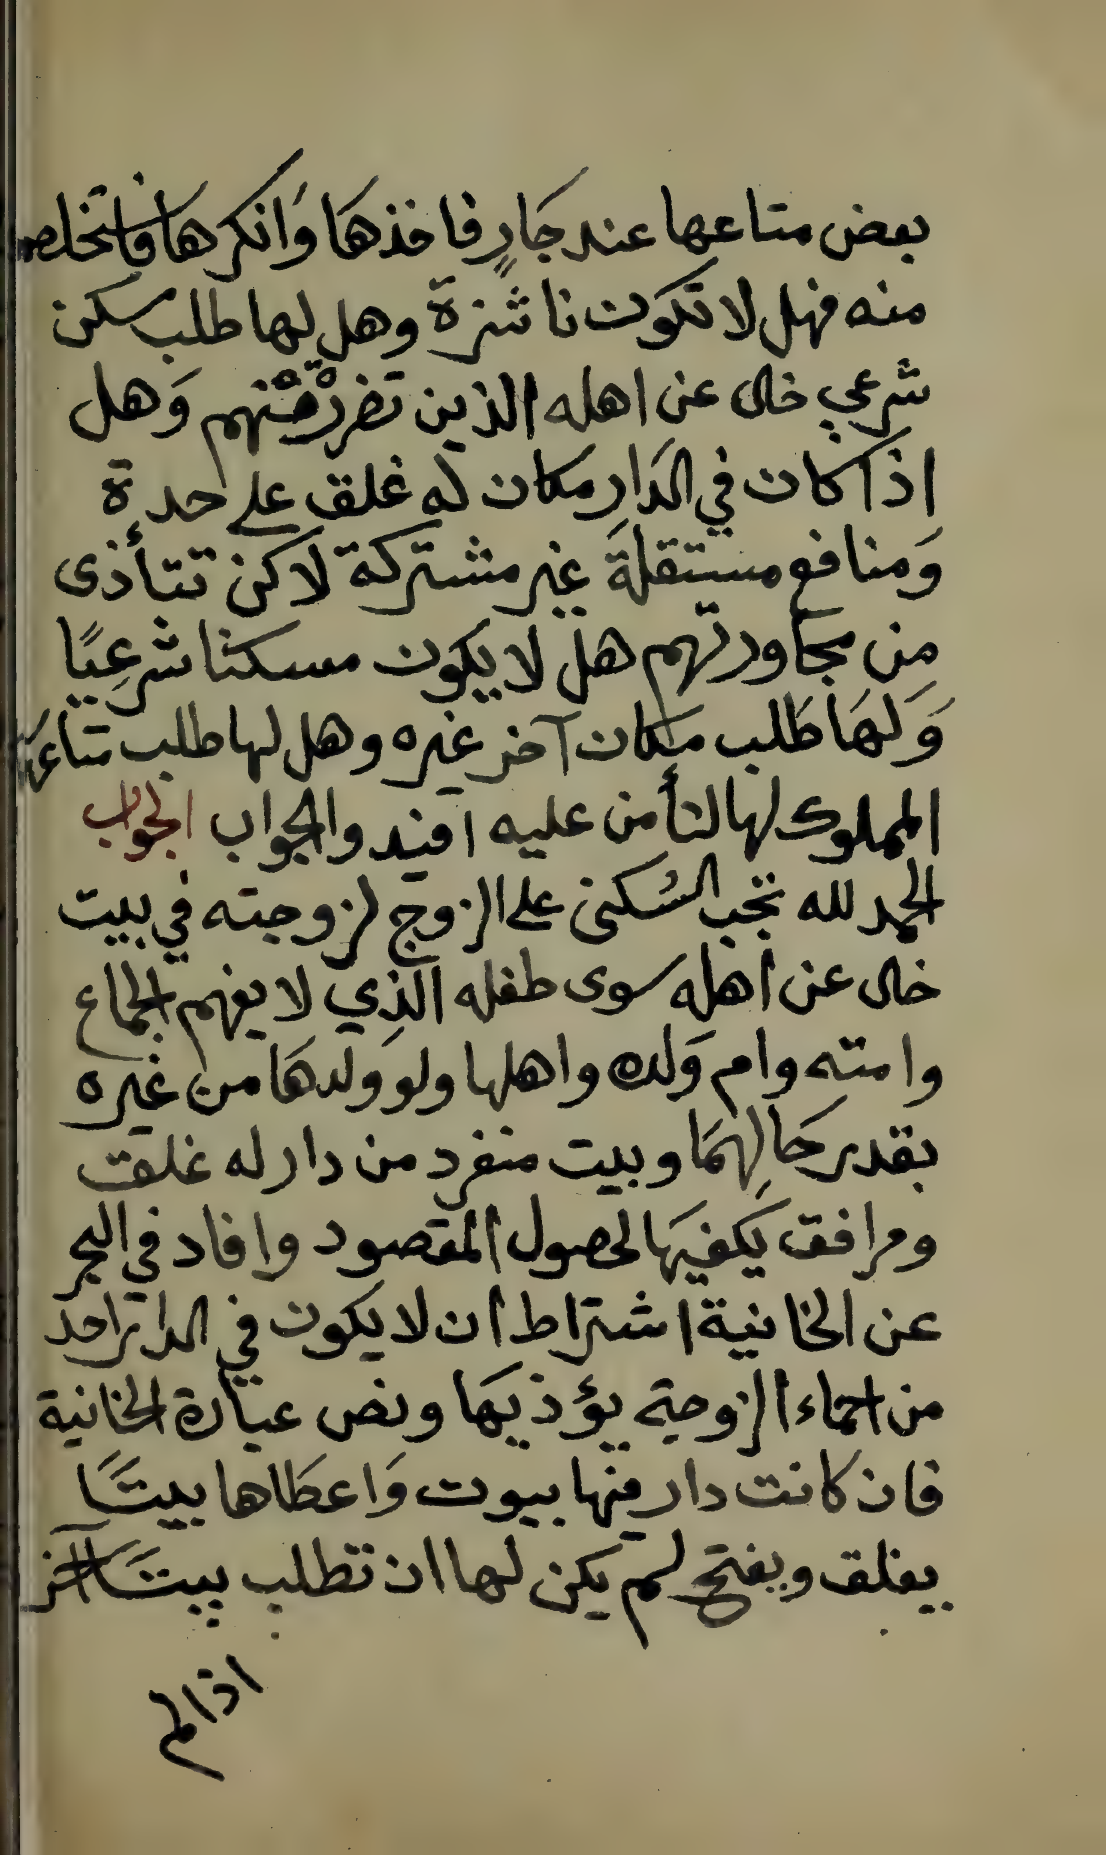 بعض متاعها عند جَارٍ فاخذهَا وَانكرهَا فاستخلص
منه فهل لا تكون ناشزة وهل لها طلب سكن
شرعي خال عن اهله الذين تضررت منهم وَهل
اذا كان في الدَارِ مكان له غلق على حدة
وَمنافع مستقلةَ غير مشتركة لاكن تتأذى
مِن مجاورتهم هل لا يكون مسكنا شرعِيًا
وَلهَا طَلب مكان آخر غيره وهل لها طلب متاعهَا
المملوك لها لتأمن عليه افيدوا الجواب الجواب
الحمد لله تجب السُكنى على الزوج لزوجته في بيت
خال عن اهله سوى طفله الذِي لا يفهم الجماع
وامته وام وَلده واهلها ولو وَلدهَا من غيره
بقدر حَالِهمَا وبيت منفرد من دار له غلق
ومرافق يَكفيهَا لحصول المقصود وافاد في البحر
عن الخانية اشتراط ان لا يكون في الدار احد
من احماء الزوجة يؤذيهَا ونص عبارة الخانية
فان كانت دار فيها بيوت وَاعطَاها بيتًا
يغلق ويفتح لم يكن لها ان تطلب بيتًا آخر
اذا لم